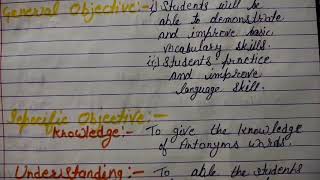 General Objective:- i) Students will be
able to demonstrate
and improve basic
vocabulary skills.
ii) Students practice
and improve
language skill.
Specific Objective:-
Knowledge:- To give the knowledge
of Antonyms words.
Understanding:- To able the students